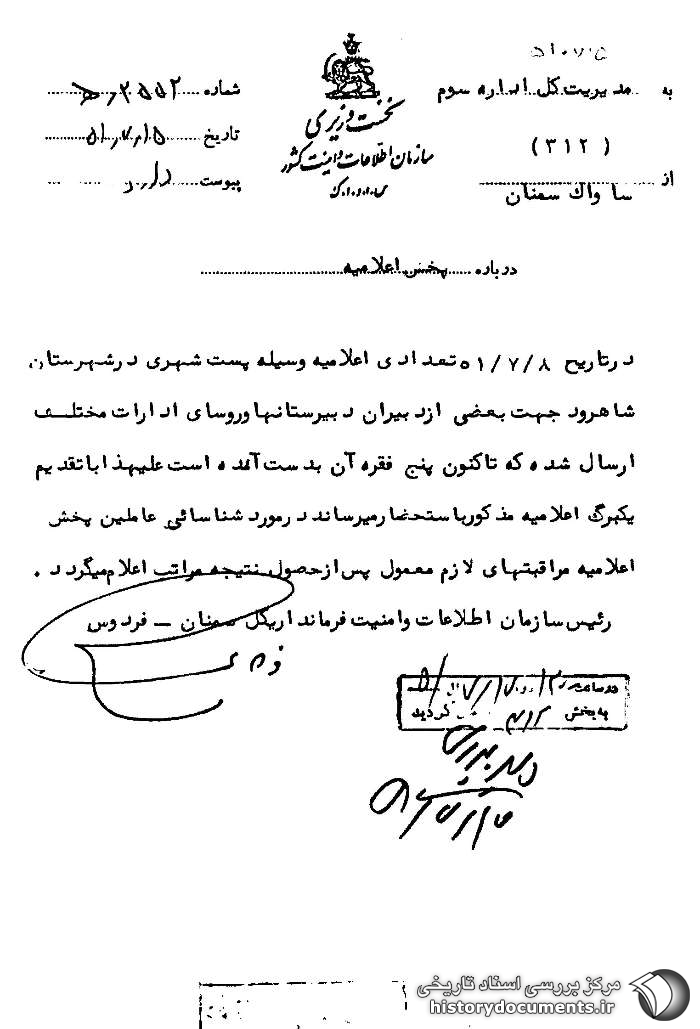 ۵۱۰۷۱۵
به مدیریت کل اداره سوم
(۳۱۲)
از ساواک سمنان
نخست وزیری
سازمان اطلاعات و امنیت کشور
س.ا.و.ا.ک
شماره ۲۵۵۲/ه
تاریخ ۵۱/۷/۱۵
پیوست دارد
درباره پخش اعلامیه
درتاریخ ۵۱/۷/۸ تعدادی اعلامیه وسیله پست شهری درشهرستان
شاهرود جهت بعضی ازدبیران دبیرستانها وروسای ادارات مختلف
ارسال شده که تاکنون پنج فقره آن بدست آمده است علیهذا باتقدیم
یکبرگ اعلامیه مذکور باستحضار میرساند درمورد شناسائی عاملین پخش
اعلامیه مراقبتهای لازم معمول پس ازحصول نتیجه مراتب اعلام میگردد.
رئیس سازمان اطلاعات وامنیت فرمانداریکل سمنان – فردوس
درساعت
به بخش ۳۱۲ گردید
مرکز بررسی اسناد تاریخی
historydocuments.ir